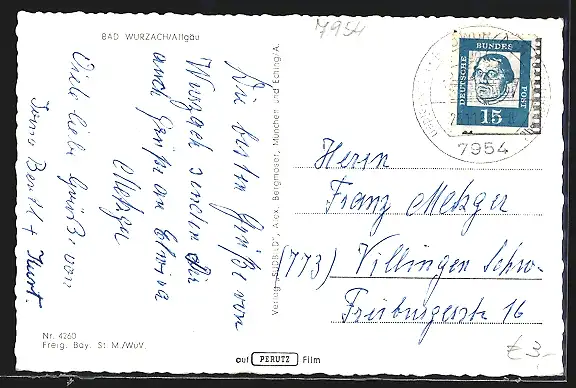 7954
BAD WURZACH/Allgäu
Die besten Grüße von
Wurzach senden Dir
auch Grüße an Elvira
Metzger
Viele liebe Grüße von
Kurt.
Verlag „SÜDBILD", Alex. Bergmoser, München und Eching/A.
DEUTSCHE BUNDES POST
15
7954
Herrn
Franz Metzger
(773) Villingen Schw.
Freiburgerstr 16
Nr. 4260
Freig. Bay. St. M./WuV.
auf PERUTZ Film
€ 3,-